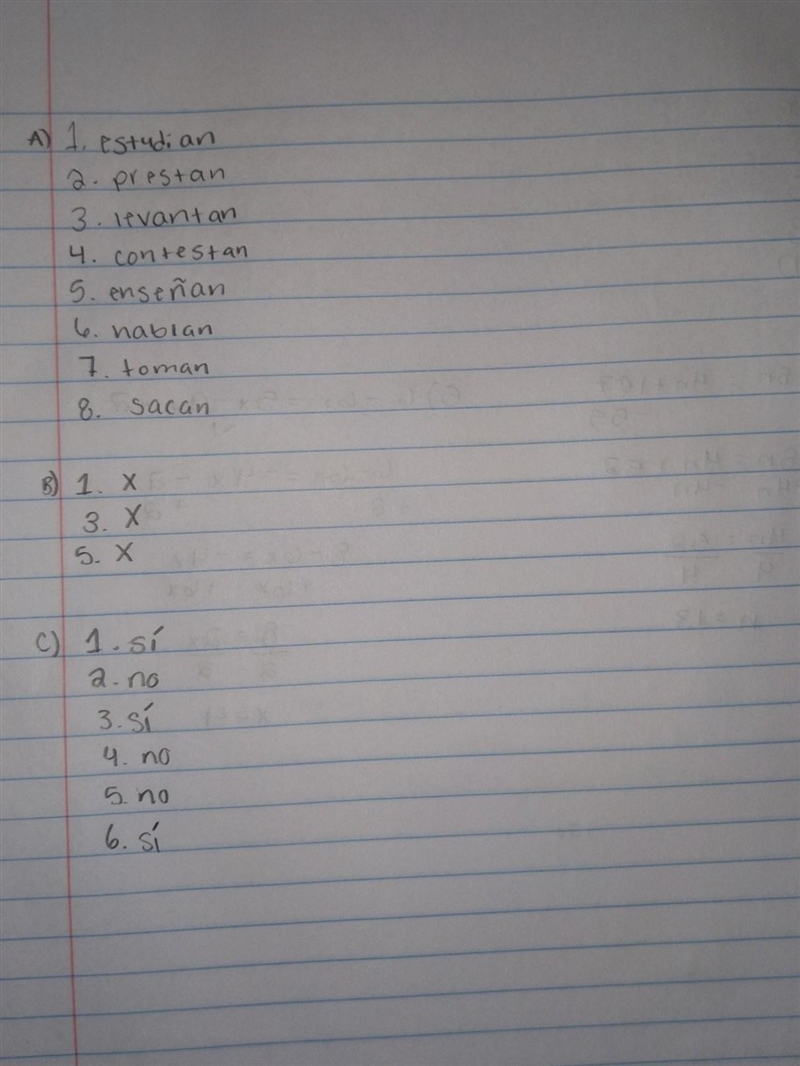 A) 1. estudian
2. prestan
3. levantan
4. contestan
5. enseñan
6. hablan
7. toman
8. sacan
B) 1. X
3. X
5. X
C) 1. sí
2. no
3. sí
4. no
5. no
6. sí